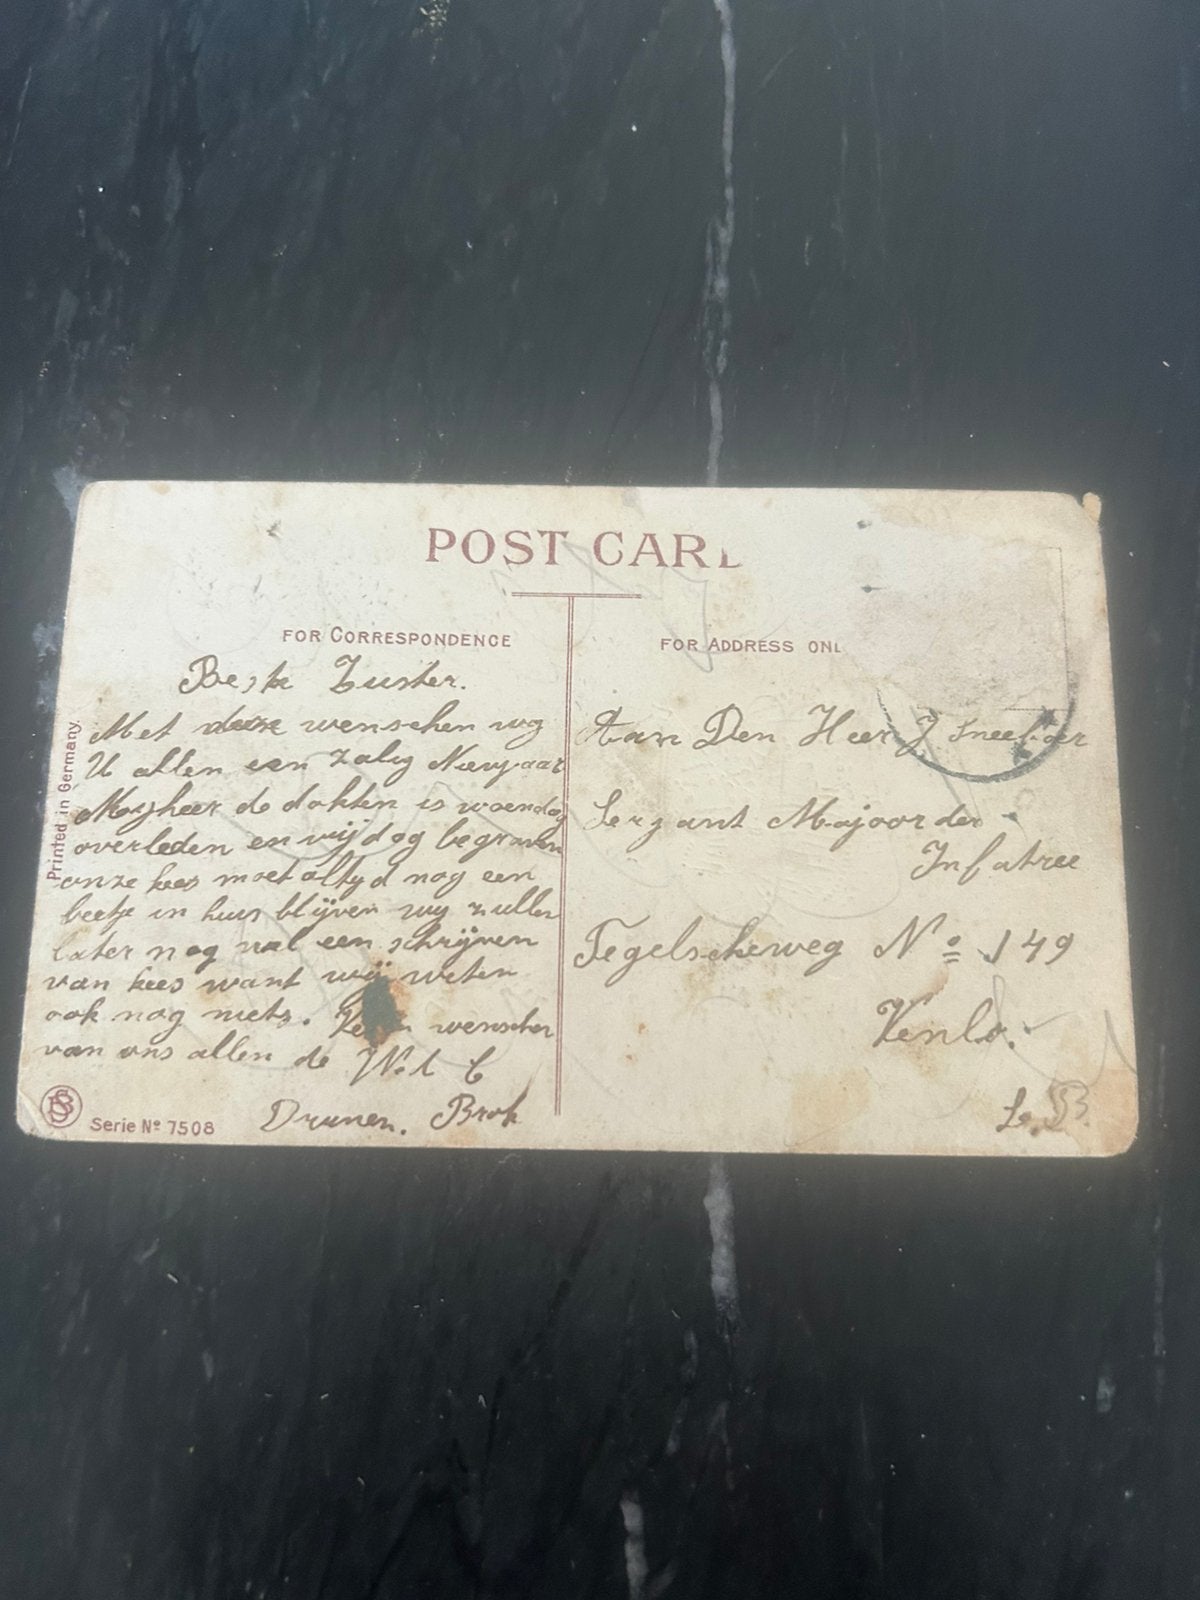 POST CARD
FOR CORRESPONDENCE
FOR ADDRESS ONL
Printed in Germany.
Beste Zuster.
Met deze wenschen wy
U allen een zalig Nieuwjaar
Mijheer de dokter is woensdag
overleden en vrijdag begraven
onze kees moet altyd nog een
beetje in huis blijven wy zullen
later nog wel een schrijven
van kees want wij weten
ook nog niets. wenschen
van ons allen de W.d C
Drunen. Brok
SB
Serie Nº 7508
Aan Den Heer J Sneeboer
Serzant Majoor der
Infatree
Tegelscheweg Nº 149
Venlo.
L. B.